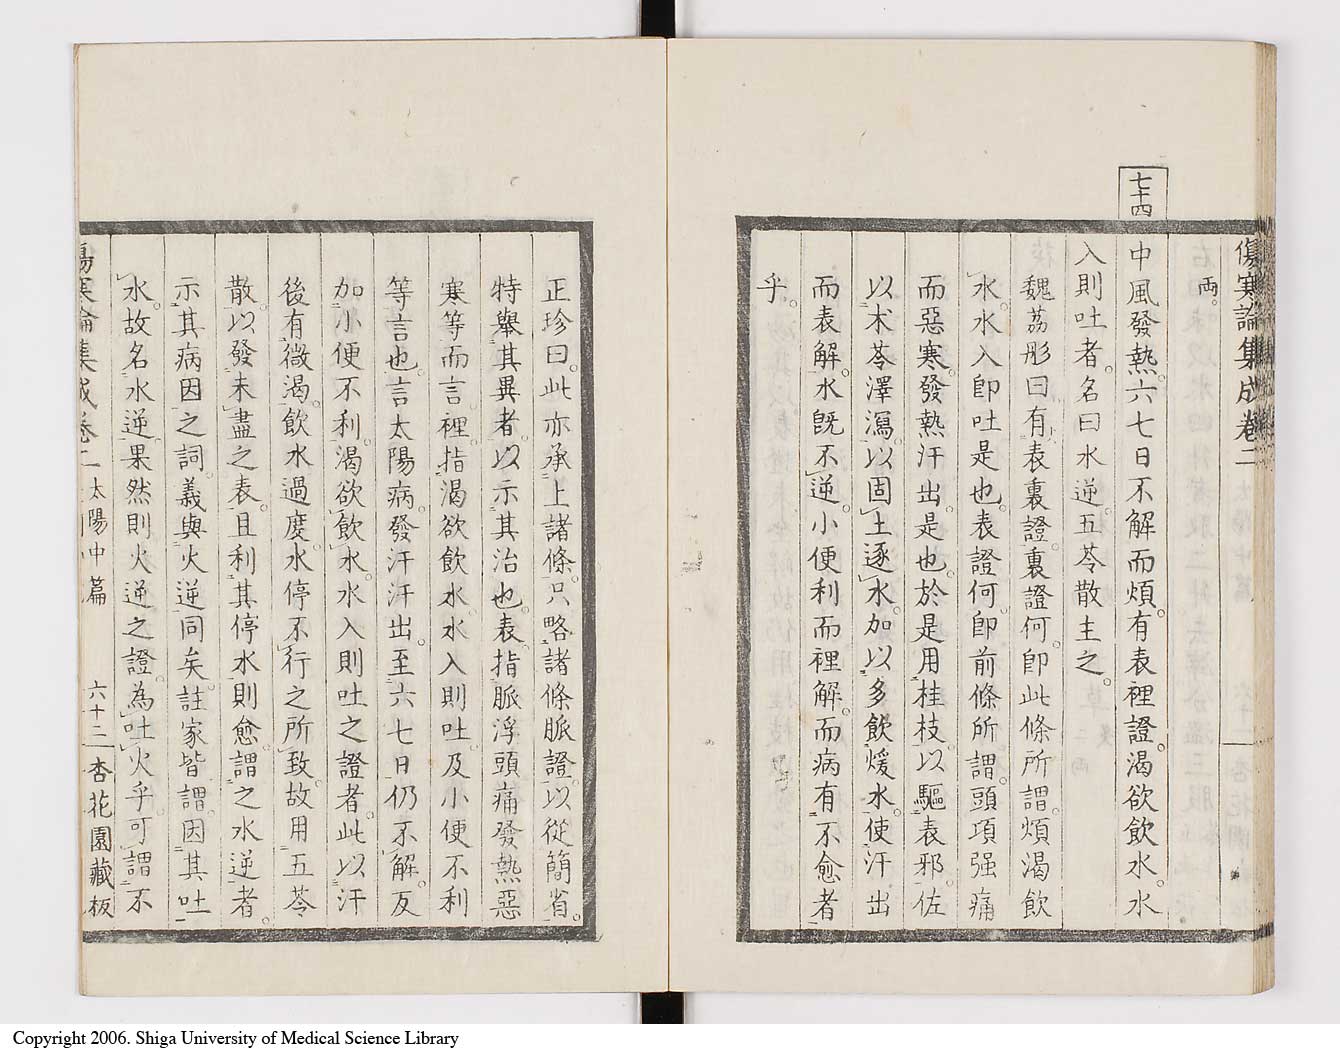 七十四
傷寒論集成卷二
両。
中風發熱。六七日不解而煩。有表裡證。渴欲飲水。水
入則吐者。名曰水逆。五苓散主之。
魏荔彤曰。有表裏證。裏證何。卽此條所謂。煩渴飲
水。水入卽吐是也。表證何。卽前條所謂。頭項强痛
而惡寒。發熱汗出是也。於是用桂枝。以驅表邪。佐
以术苓澤瀉。以固土逐水。加以多飲煖水。使汗出
而表解。水旣不逆。小便利而裡解。而病有不愈者
乎。
正珍曰。此亦承上諸條。只略諸條脈證。以從簡省。
特舉其異者。以示其治也。表指脈浮頭痛發熱惡
寒等而言。裡指渴欲飲水。水入則吐。及小便不利
等言也。言太陽病。發汗汗出。至六七日仍不解。反
加小便不利。渴欲飲水。水入則吐之證者。此以汗
後有微渴。飲水過度。水停不行之所致。故用五苓
散。以發未盡之表。且利其停水則愈。謂之水逆者。
示其病因之詞。義與火逆同矣。註家皆謂。因其吐
水。故名水逆。果然則火逆之證。為吐火乎。可謂不
傷寒論集成卷二 太陽中篇 六十三 杏花園藏板
Copyright 2006. Shiga University of Medical Science Library